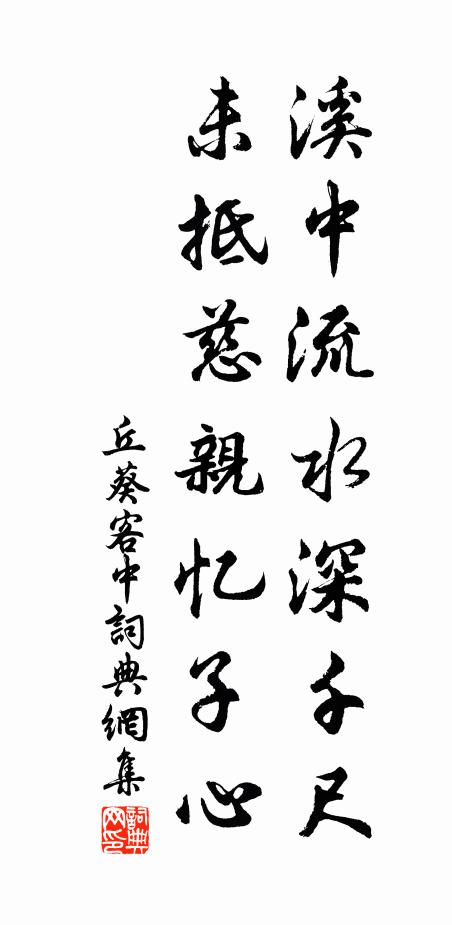 溪中流水深千尺
未抵慈親忆子心
丘葵客中詞典網集
詞典
网印